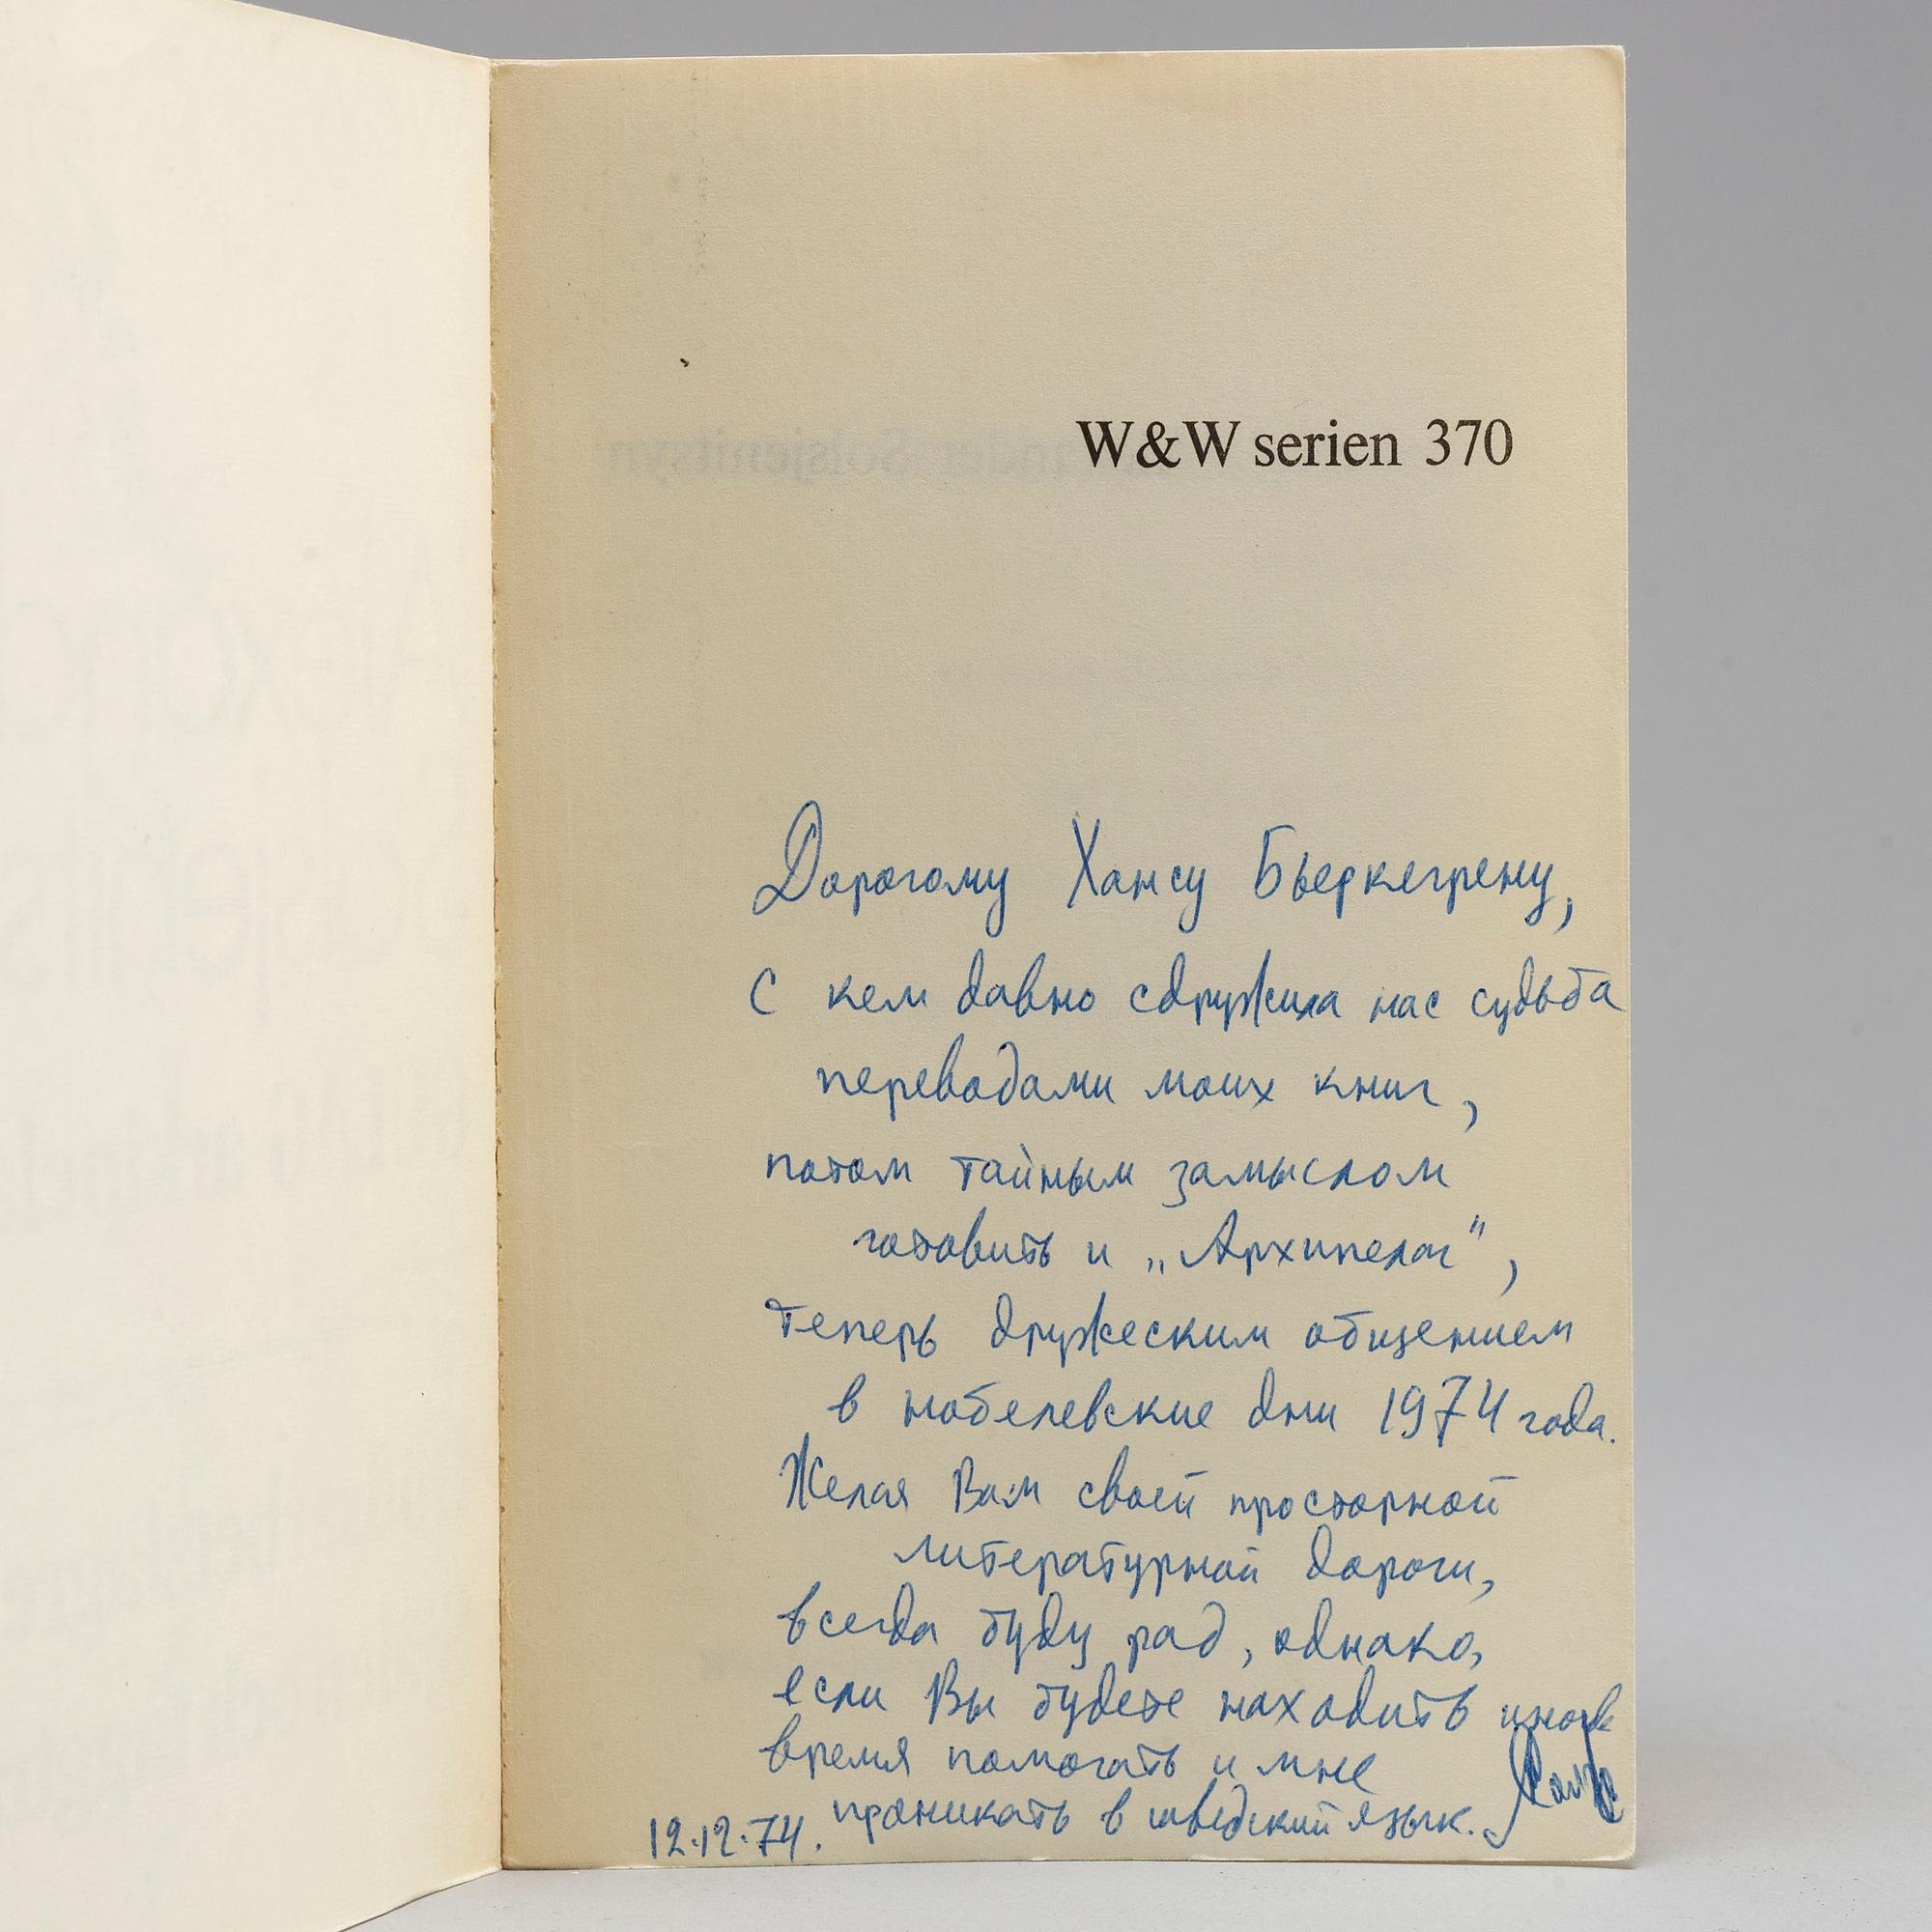 W&W serien 370
Дорогому Хансу Бьеркегрену,
с кем давно сдружила нас судьба
переводами моих книг,
потом тайным замыслом
готовить и „Архипелаг",
теперь дружеским общением
в нобелевские дни 1974 года.
Желая Вам своей просторной
литературной дороги,
всегда буду рад, однако,
если Вы будете находить иногда
время помогать и мне
проникать в шведский язык.
12.12.74.